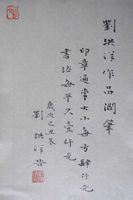 劉洪洋作品潤筆
印章通常大小每方肆仟元
書法每平尺壹仟元
歲次己丑冬
劉洪洋啓